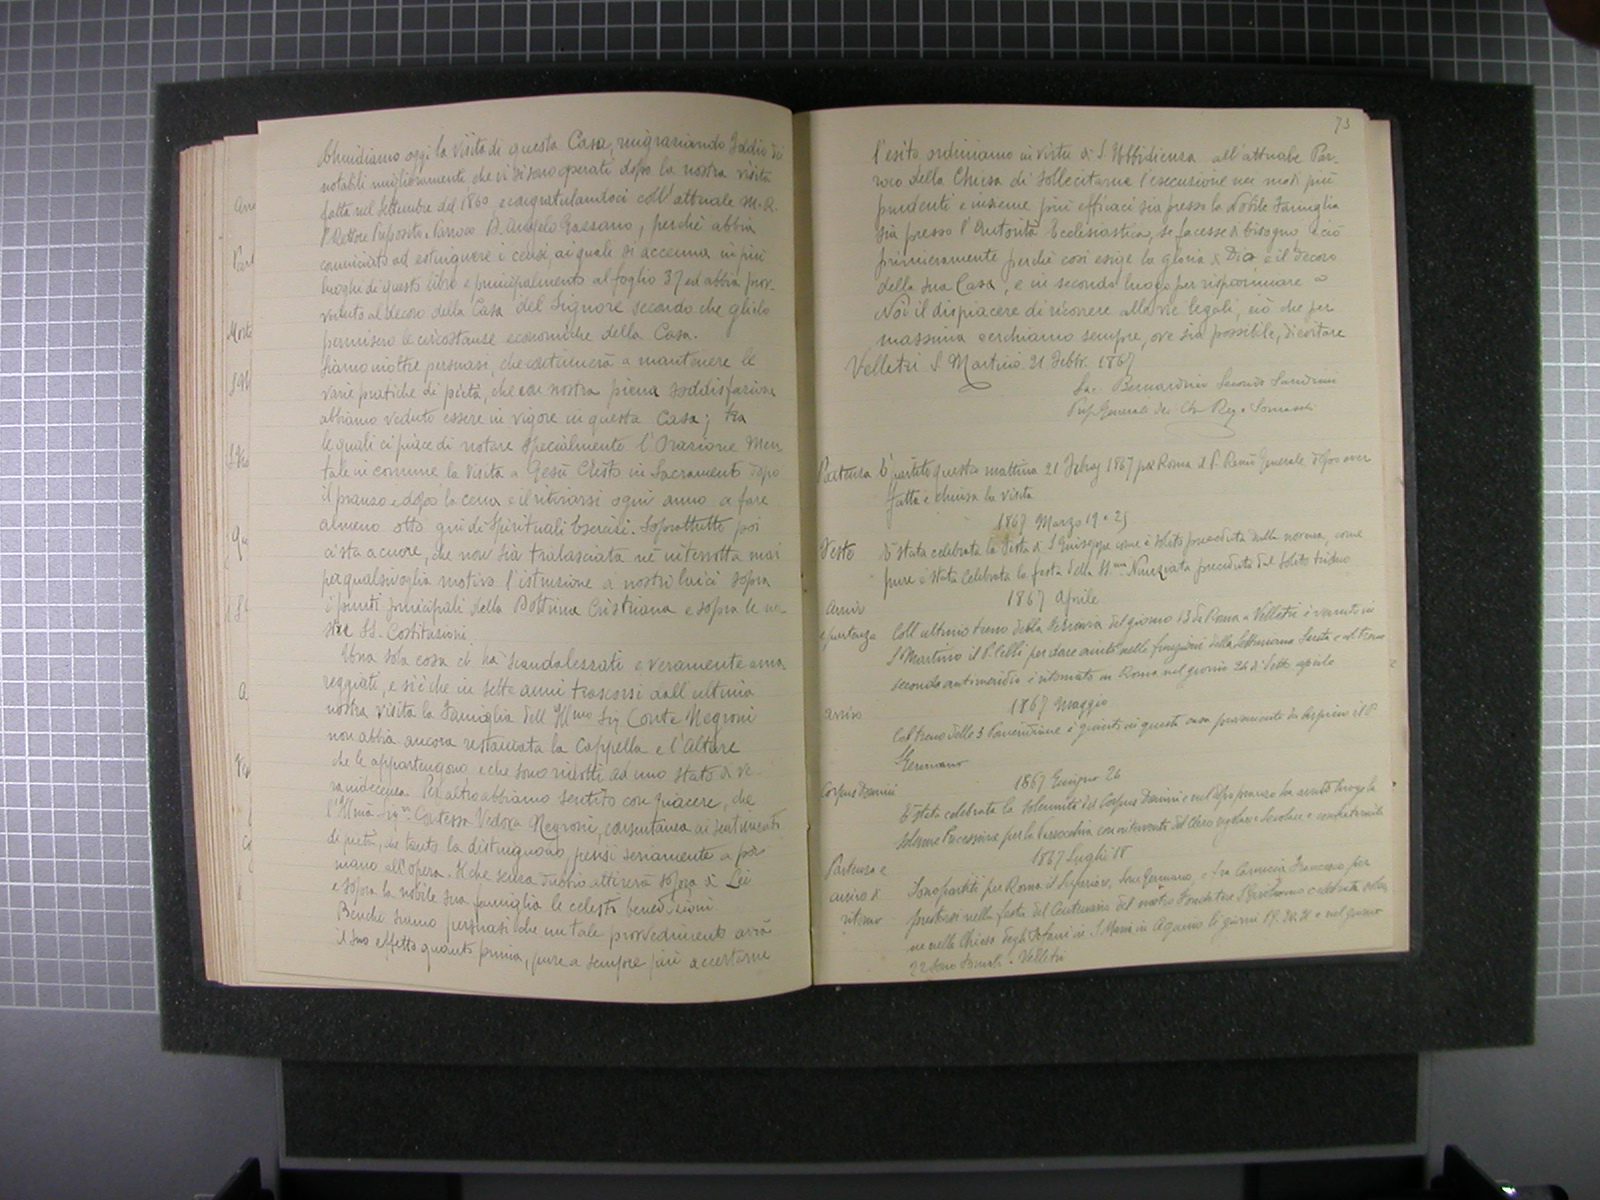 Chiudiamo oggi la Visita di questa Casa, ringraziando Iddio dei
notabili miglioramenti che vi si sono operati dopo la nostra visita
fatta nel Settembre del 1860 e congratulandoci coll'attuale M. R.
P. Rettore Preposito e Parroco D. Angelo Gaessano, perchè abbia
cominciato ad estinguere i censi, ai quali si accenna in più
luoghi di questo libro e principalmente al foglio 37 ed abbia prov-
veduto al decoro della Casa del Signore secondo che glielo
permisero le circostanze economiche della Casa.
Siamo inoltre persuasi, che continuerà a mantenere le
varie pratiche di pietà, che con nostra piena soddisfazione
abbiamo veduto essere in vigore in questa Casa; tra
le quali ci piace di notare specialmente l'Orazione Men
tale in comune la visita a Gesù Cristo in Sacramento dopo
il pranzo e dopo la cena e il ritirarsi ogni anno a fare
almeno otto gni di Spirituali Esercizi. Soprattutto poi
ci sta a cuore, che non sia tralasciata nè interrotta mai
per qualsivoglia motivo l'istruzione a nostri laici sopra
i punti principali della Dottrina Cristiana e sopra le no-
stre SS. Costituzioni.
Una sola cosa ci ha scandalezzati e veramente ama
reggiati, e si è che in sette anni trascorsi dall'ultima
nostra visita la Famiglia dell'Illmo Sig Conte Negroni
non abbia ancora restaurata la Cappella e l'Altare
che le appartengono e che sono ridotti ad uno stato di ve
ra indecenza. Per altro abbiamo sentito con piacere, che
l'Illma Sigra Contessa Vedova Negroni, consentanea ai sentimenti
di pietà, che tanto la distinguono, pensi seriamente a por
mano all'opera. Il che senza dubbio attirerà sopra di Lei
e sopra la nobile sua famiglia le celesti benedizioni
Benchè siamo persuasi che un tale provvedimento avrà
il suo effetto quanto prima, pure a sempre più accertarne
73
l'esito ordiniamo in virtù di S. Ubbidienza all'attuale Par-
roco della Chiesa di sollecitarne l'esecuzione nei modi più
prudenti e insieme più efficaci sia presso la Nobile Famiglia
sia presso l'Autorità Ecclesiastica, se facesse di bisogno e ciò
primieramente perchè così esige la gloria di Dio e il decoro
della sua Casa, e in secondo luogo per risparmiare a
Noi il dispiacere di ricorrere alle vie legali, ciò che per
massima cerchiamo sempre, ove sia possibile, di evitare
Velletri S. Martino 21 Febbr. 1867
Bernardino Secondo Sandrini
Prep. Generale dei Ch. Reg. Somaschi
Partenza È partito questa mattina 21 Febraj 1867 per Roma il P. Rmo Generale dopo aver
fatta e chiusa la visita
1867 Marzo 19 e 25
Feste È stata celebrata la Festa di S Giuseppe come è solito preceduta dalla novena, come
pure è stata celebrata la festa della SS.ma Nunziata preceduta dal solito triduo
1867 Aprile
Arrivo
e partenza Coll'ultimo treno della Ferrovia del giorno 13 da Roma a Velletri è venuto in
S. Martino il P. Celli per dare aiuto nelle funzioni della Settimana Santa e col treno
secondo antimeridio è ritornato in Roma nel giorno 26 di detto aprile
1867 Maggio
arrivo Col treno delle 3 Pomeridiane è giunto in questa casa proveniente da il P.
Germano
1867 Giugno 26
Corpus Domini È stata celebrata la solennità del Corpus Domini e nel dopo pranzo ha avuto luogo la
solenne Processione per la Parrocchia con intervento del Clero regolare e Secolare e confraternite
1867 Luglio 18
Partenza e
arrivo di
ritorno
Sono partiti per Roma il Superiore, Germano, e fra Francesco per
prestarsi nella festa del Centenario del nostro Fondatore S Girolamo celebrata
ne nella Chiesa degli Orfani in S Maria in Aquiro li giorni 19. 20. 21 e nel giorno
22 sono tornati a Velletri